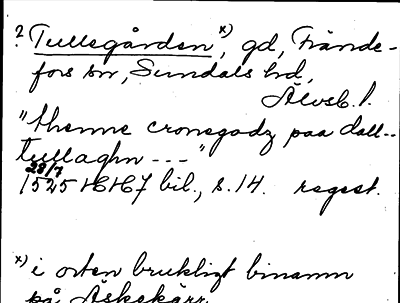 ? Tullsgården x), gd, Frände-
fors sn, Sundals hd,
Älvsb. l.
"thenne cronegodz paa dall--
tullaghn --- "
28/7
1525 HH7 bil., s. 14. regest.
x) i orten brukligt binamn
på Äskekärr